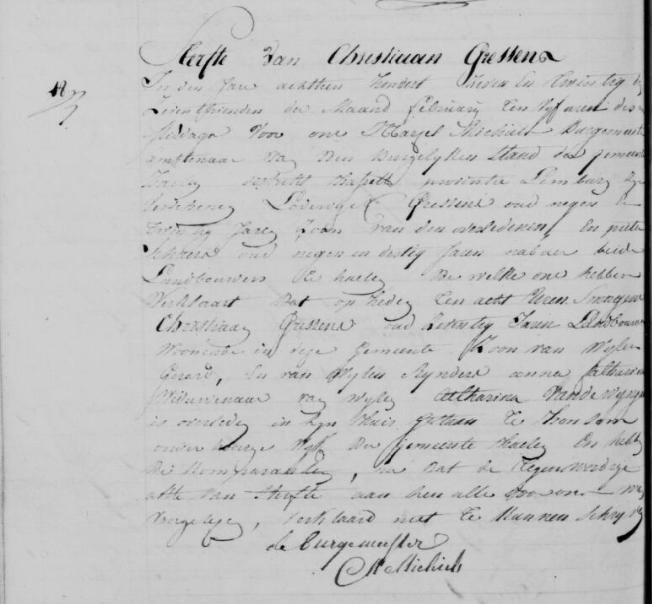 Sterfte van Christiaan Gressens
In den Jare achthien hondert zeven En twintig den
Zeventhienden der Maand february Een uren des
Middags Voor ons Michiels Burgemeester
amptenaar Van Den Burgelyken Stand der gemeente
Haelen district Hasselt provintie Limburg zyn
Verschenen Lodewyk Gressens oud negen En
twintig Jaren Zoon van den overledenen En pieter
Schoers oud negen in dertig Jaren nabuer beide
Landbouwers te haelen De welke ons hebben
Verklaart Dat op heden Ten acht Uren Smorgens
Christiaan Gressens oud Jaren Landbouwer
Woonende in deze gemeente Zoon van Wylen
Gerard, En van Wylen Rynders anna Catharina
Weduwenaar van Wylen Catharina Vandewyngaer
is overleden in zyn Huis gestaen Te
onder deeze Wyk der Gemeente Haelen En hebben
De Komparanten, na Dat de Tegenwoordige
akte van Sterfte aan hen alle door ons is
Voorgelezen, verklaard niet Te Kunnen Schryven
de burgemeester
Michiels